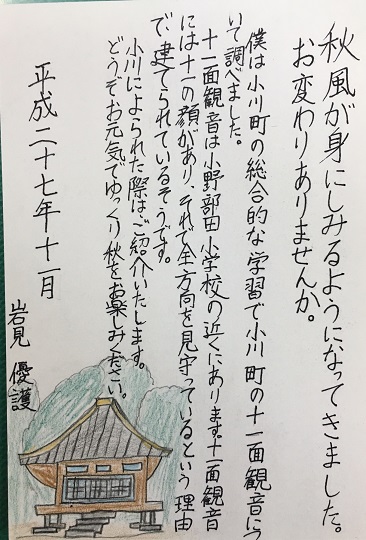 秋風が身にしみるようになってきました。
お変わりありませんか。
僕は小川町の総合的な学習で小川町の十一面観音につ
いて調べました。
十一面観音は小野部田小学校の近くにあります。十一面観音
には十一の顔があり、それで全方向を見守っているという理由
で建てられているそうです。
小川によられた際はご紹介いたします。
どうぞお元気でゆっくり秋をお楽しみください。
平成二十七年十一月
岩見 優護